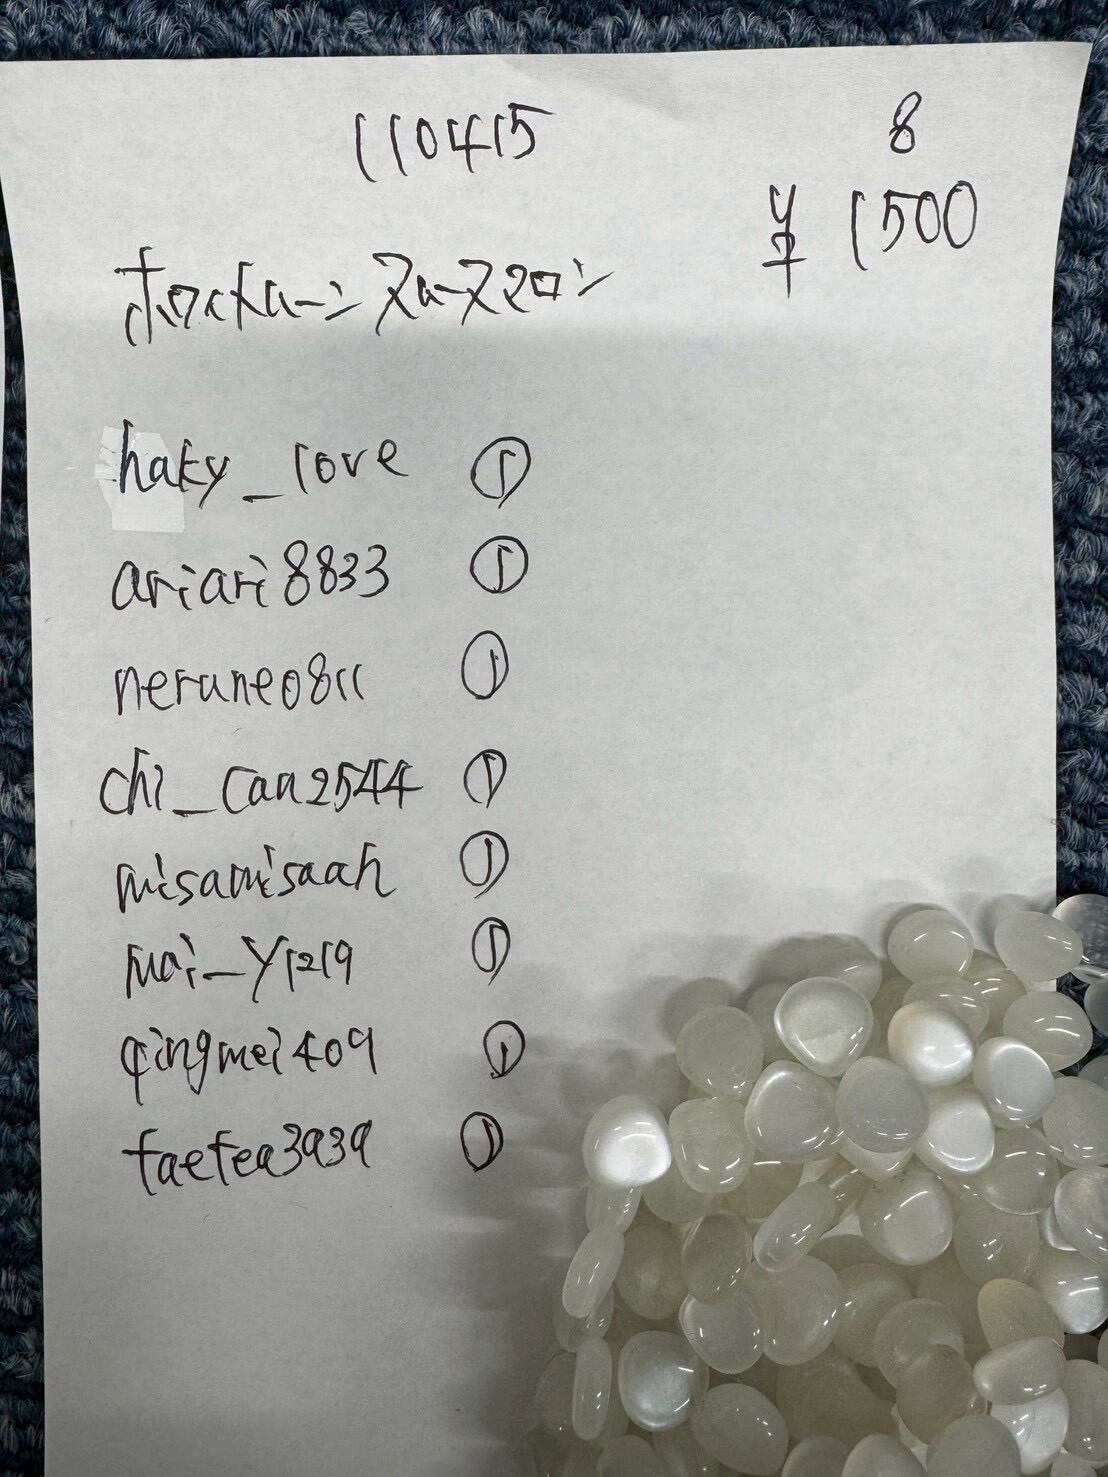 110415
8
¥1500
haky_love ①
ariari8833 ①
nerune0811 ①
chi_can2544 ①
misamisaah ①
mai_y1219 ①
qingmei409 ①
faefea3939 ①